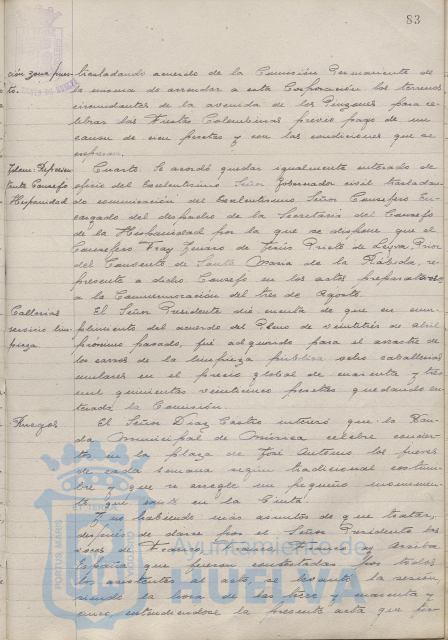 83
ción zona puer-
to.
trasladando acuerdo de la Comisión Permanente de
la misma de arrendar a esta Corporación los terrenos
circundantes de la avenida de los Pinzones para ce-
lebrar las Fiestas Colombinas previo pago de un
canon de cien pesetas y con las condiciones que se
expresan.
Idem Represen-
tante Consejo
Hispanidad
Cuarto. Se acordó quedar igualmente enterado de
oficio del Excelentísimo Señor Gobernador civil trasladan-
do comunicación del Excelentísimo Señor Consejero En-
cargado del despacho de la Secretaría del Consejo
de la Hispanidad por la que se dispone que el
Consejero Fray Genaro de Jesús Prieto de Leyva, Prior
del Convento de Santa María de la Rábida, re-
presente a dicho Consejo en los actos preparatorios
a la Conmemoración del tres de Agosto.
Caballerías
servicio lim-
pieza
El Señor Presidente dió cuenta de que en cum-
plimiento del acuerdo del Pleno de veintitrés de abril
próximo pasado, fué adquirido para el arrastre de
los carros de la limpieza pública ocho caballerías
mulares en el precio global de cuarenta y tres
mil quinientas veinticinco pesetas quedando en-
terada la Comisión.
Ruegos
El Señor Díaz Castro interesó que la Ban-
da Municipal de Música celebre concier-
tos en la plaza de José Antonio los jueves
de cada semana según tradicional costum-
bre y que se arregle un pequeño monumen-
to que existe en la Cinta.
Y no habiendo más asuntos de que tratar,
después de darse por el Señor Presidente las
voces de Franco, Franco, Franco y Arriba
España que fueron contestadas por todos
los asistentes al acto, se levantó la sesión
siendo la hora de las trece y cuarenta y
cinco, extendiéndose la presente acta que fir-
Ayuntamiento de
HUELVA
PORTUS MARIS